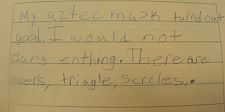 My aztec mask turnd out
good. I would not
chang enthing. There are
overs, triagle, Sercles.